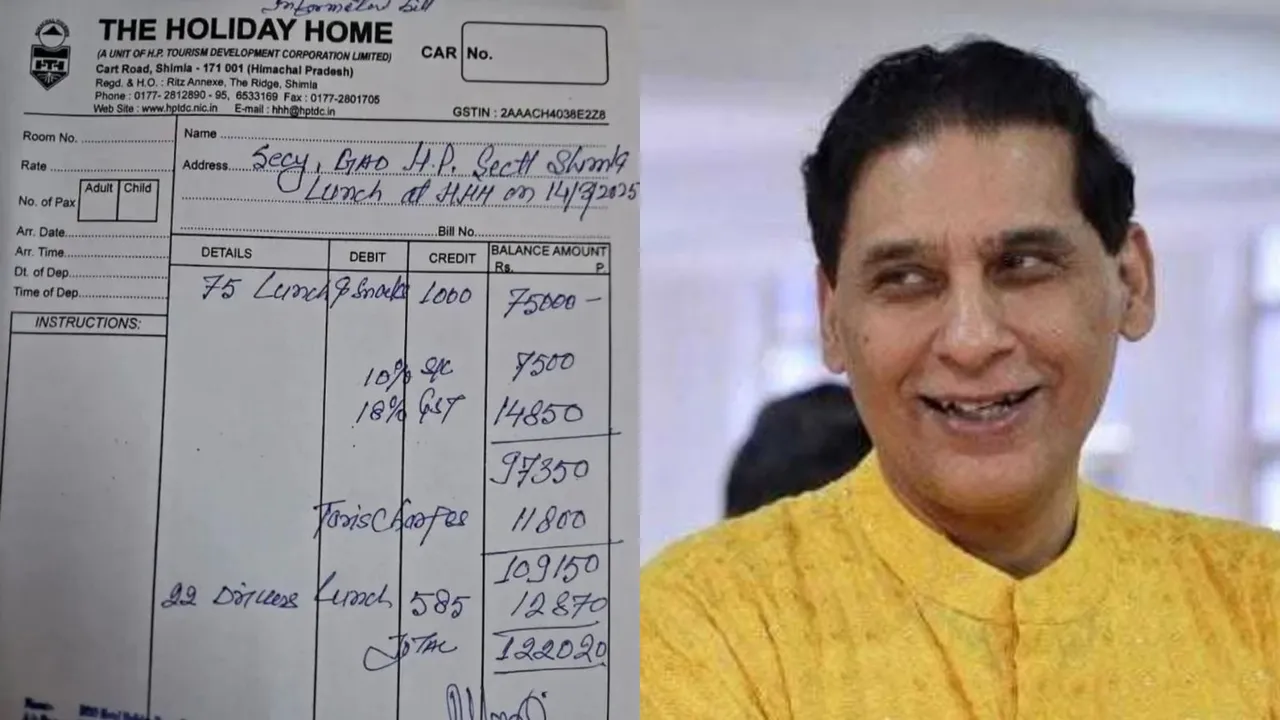 Information bill
THE HOLIDAY HOME
(A UNIT OF H.P. TOURISM DEVELOPMENT CORPORATION LIMITED)
Cart Road, Shimla - 171 001 (Himachal Pradesh)
Regd. & H.O. : Ritz Annexe, The Ridge, Shimla
Phone : 0177- 2812890 - 95, 6533169 Fax : 0177-2801705
Web Site : www.hptdc.nic.in E-mail : hhh@hptdc.in
CAR No.
GSTIN : 2AAACH4038E2Z8
HHH
Room No.
Rate
Adult Child
No. of Pax
Arr. Date
Arr. Time
Dt. of Dep
Time of Dep.
INSTRUCTIONS:
Name
Address Secy, GAD H.P. Sectt Shimla
Lunch at HHH on 14/3/2025
Bill No.
DETAILS DEBIT CREDIT BALANCE AMOUNT
Rs. P.
75 Lunch & Snacks 1000 75000 -
10% S/C 7500
18% GST 14850
97350
Charges 11800
109150
22 Drivers Lunch 585 12870
TOTAL 122020